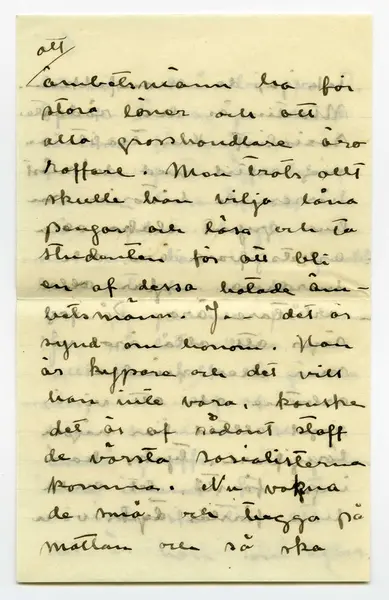 att
ämbetsmänn ha för
stora löner och att
alla grosshandlare äro
roffare. Men trots allt
skulle han vilja låna
pengar och läsa och ta
studenten för att bli
en af dessa hatade äm-
betsmänn. Ja - det är
synd om honom. Han
är kypare och det vill
han inte vara, kanske
det är af sådant stoff
de värsta socialisterna
komma. Nu vakna
de små och tugga på
mattan och så ska